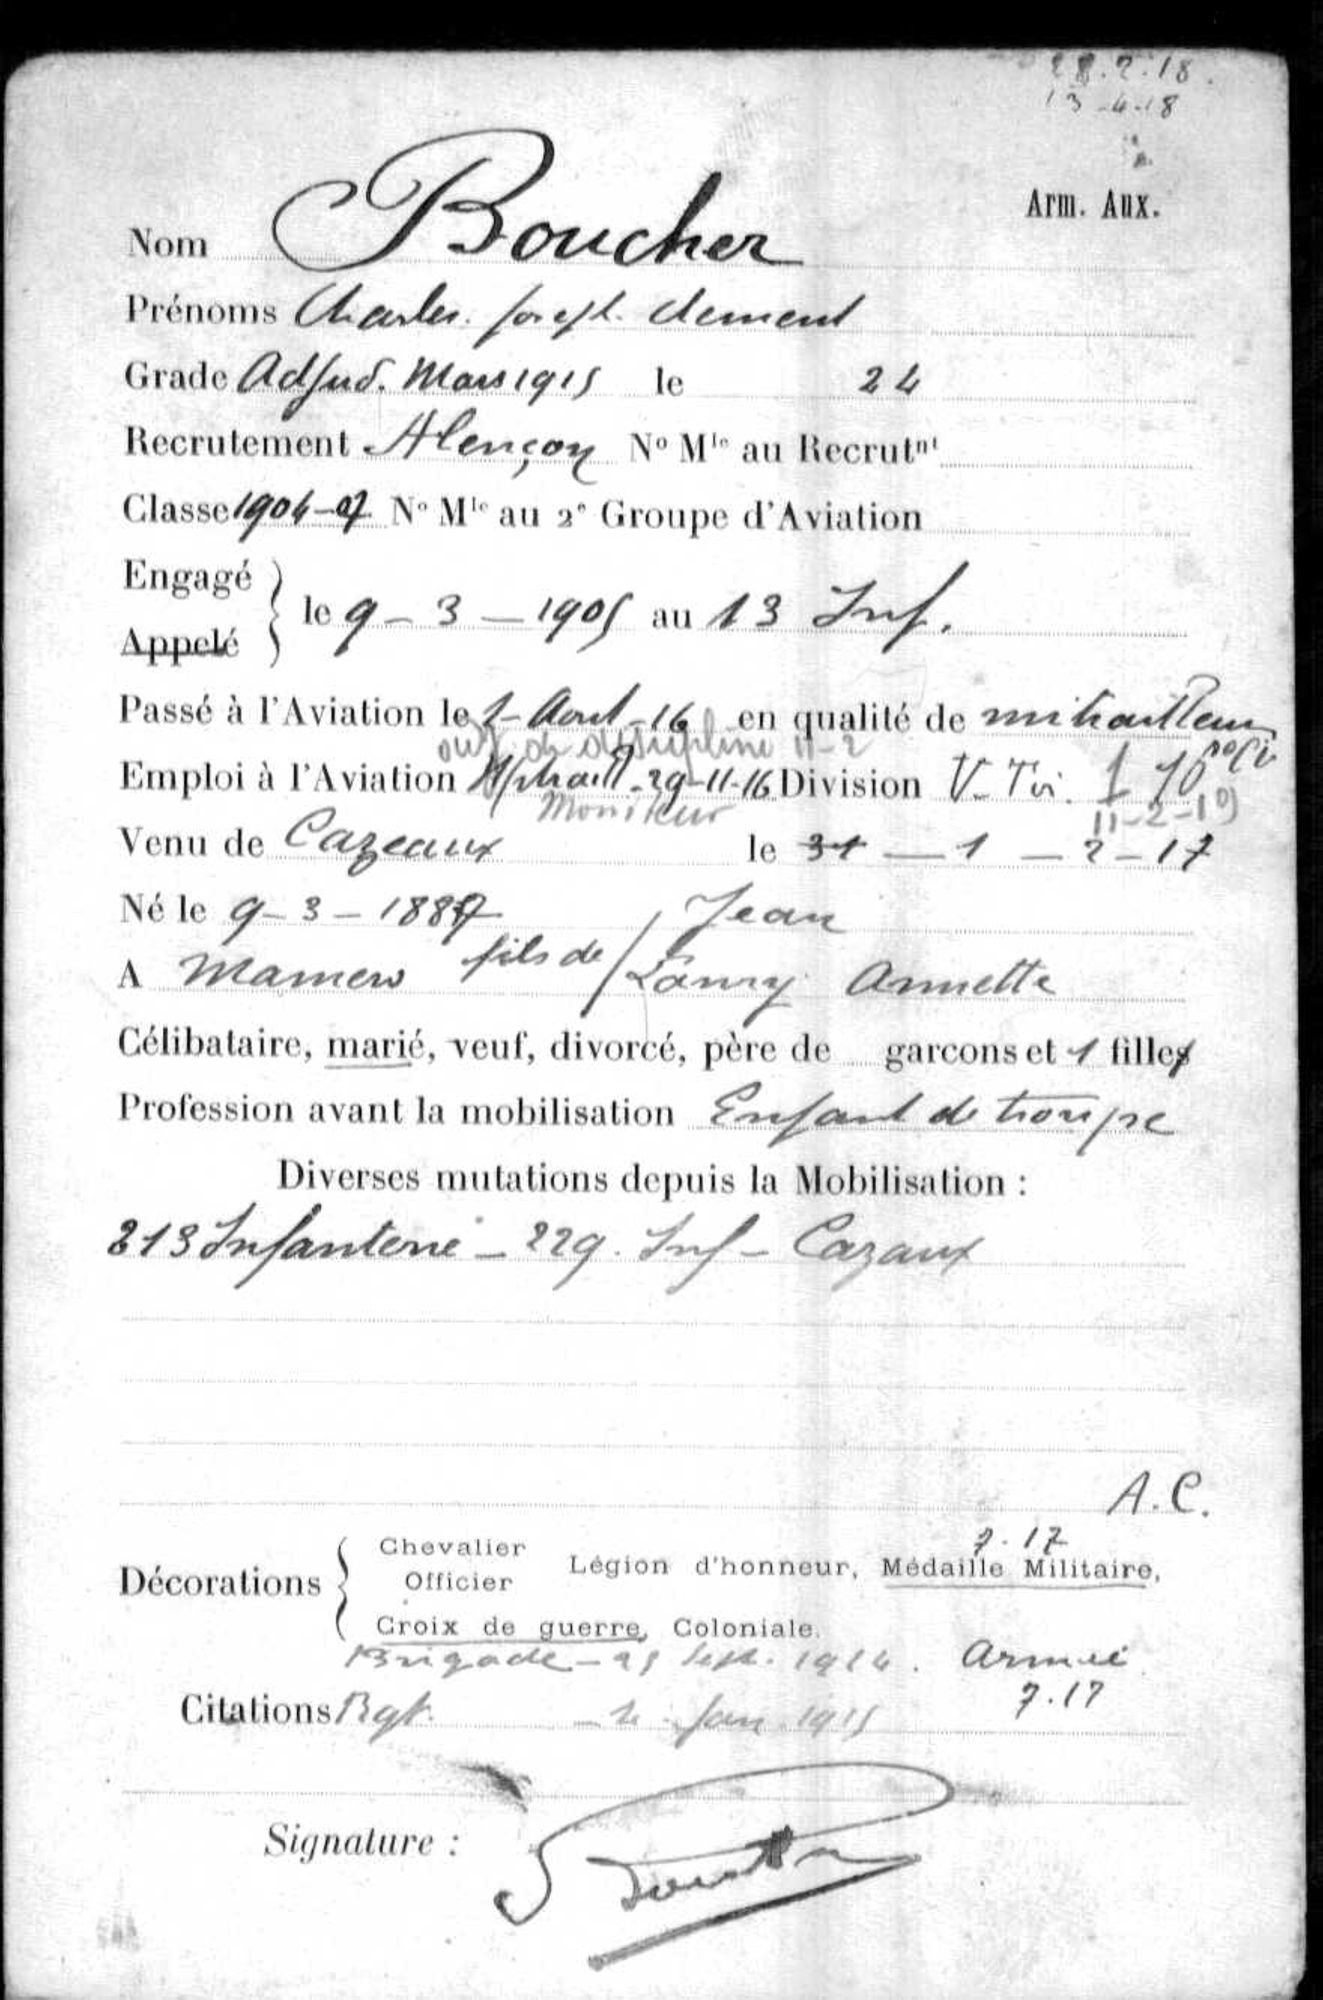 28.2.18
13-4-18
Arm. Aux.
Nom Boucher
Prénoms Charles Joseph Clement
Grade Adjud. Mars 1915 le 24
Recrutement Alençon N° Mle au Recrutnt
Classe 1904-07 N° Mle au 2e Groupe d'Aviation
Engagé
le 9-3-1905 au 13 Inf.
Appelé
Passé à l'Aviation le 1-Aout-16 en qualité de mitrailleur
de discipline 11-2
Emploi à l'Aviation 29-11-16 Division V-Tir.
Moniteur 11-2-19
Venu de Cazeaux le 31-1-2-17
Né le 9-3-1887 Jean
A Mamers fils de Lanry Annette
Célibataire, marié, veuf, divorcé, père de garcons et 1 filles
Profession avant la mobilisation Enfant de troupe
Diverses mutations depuis la Mobilisation :
213 Infanterie - 229. Inf - Cazaux
A.C.
7.17
Chevalier
Légion d'honneur, Médaille Militaire,
Décorations
Officier
Croix de guerre, Coloniale.
Brigade - 25 Sept. 1914. Armée
7.17
Citations Rgt. - 2 - Jan. 1915
Signature :